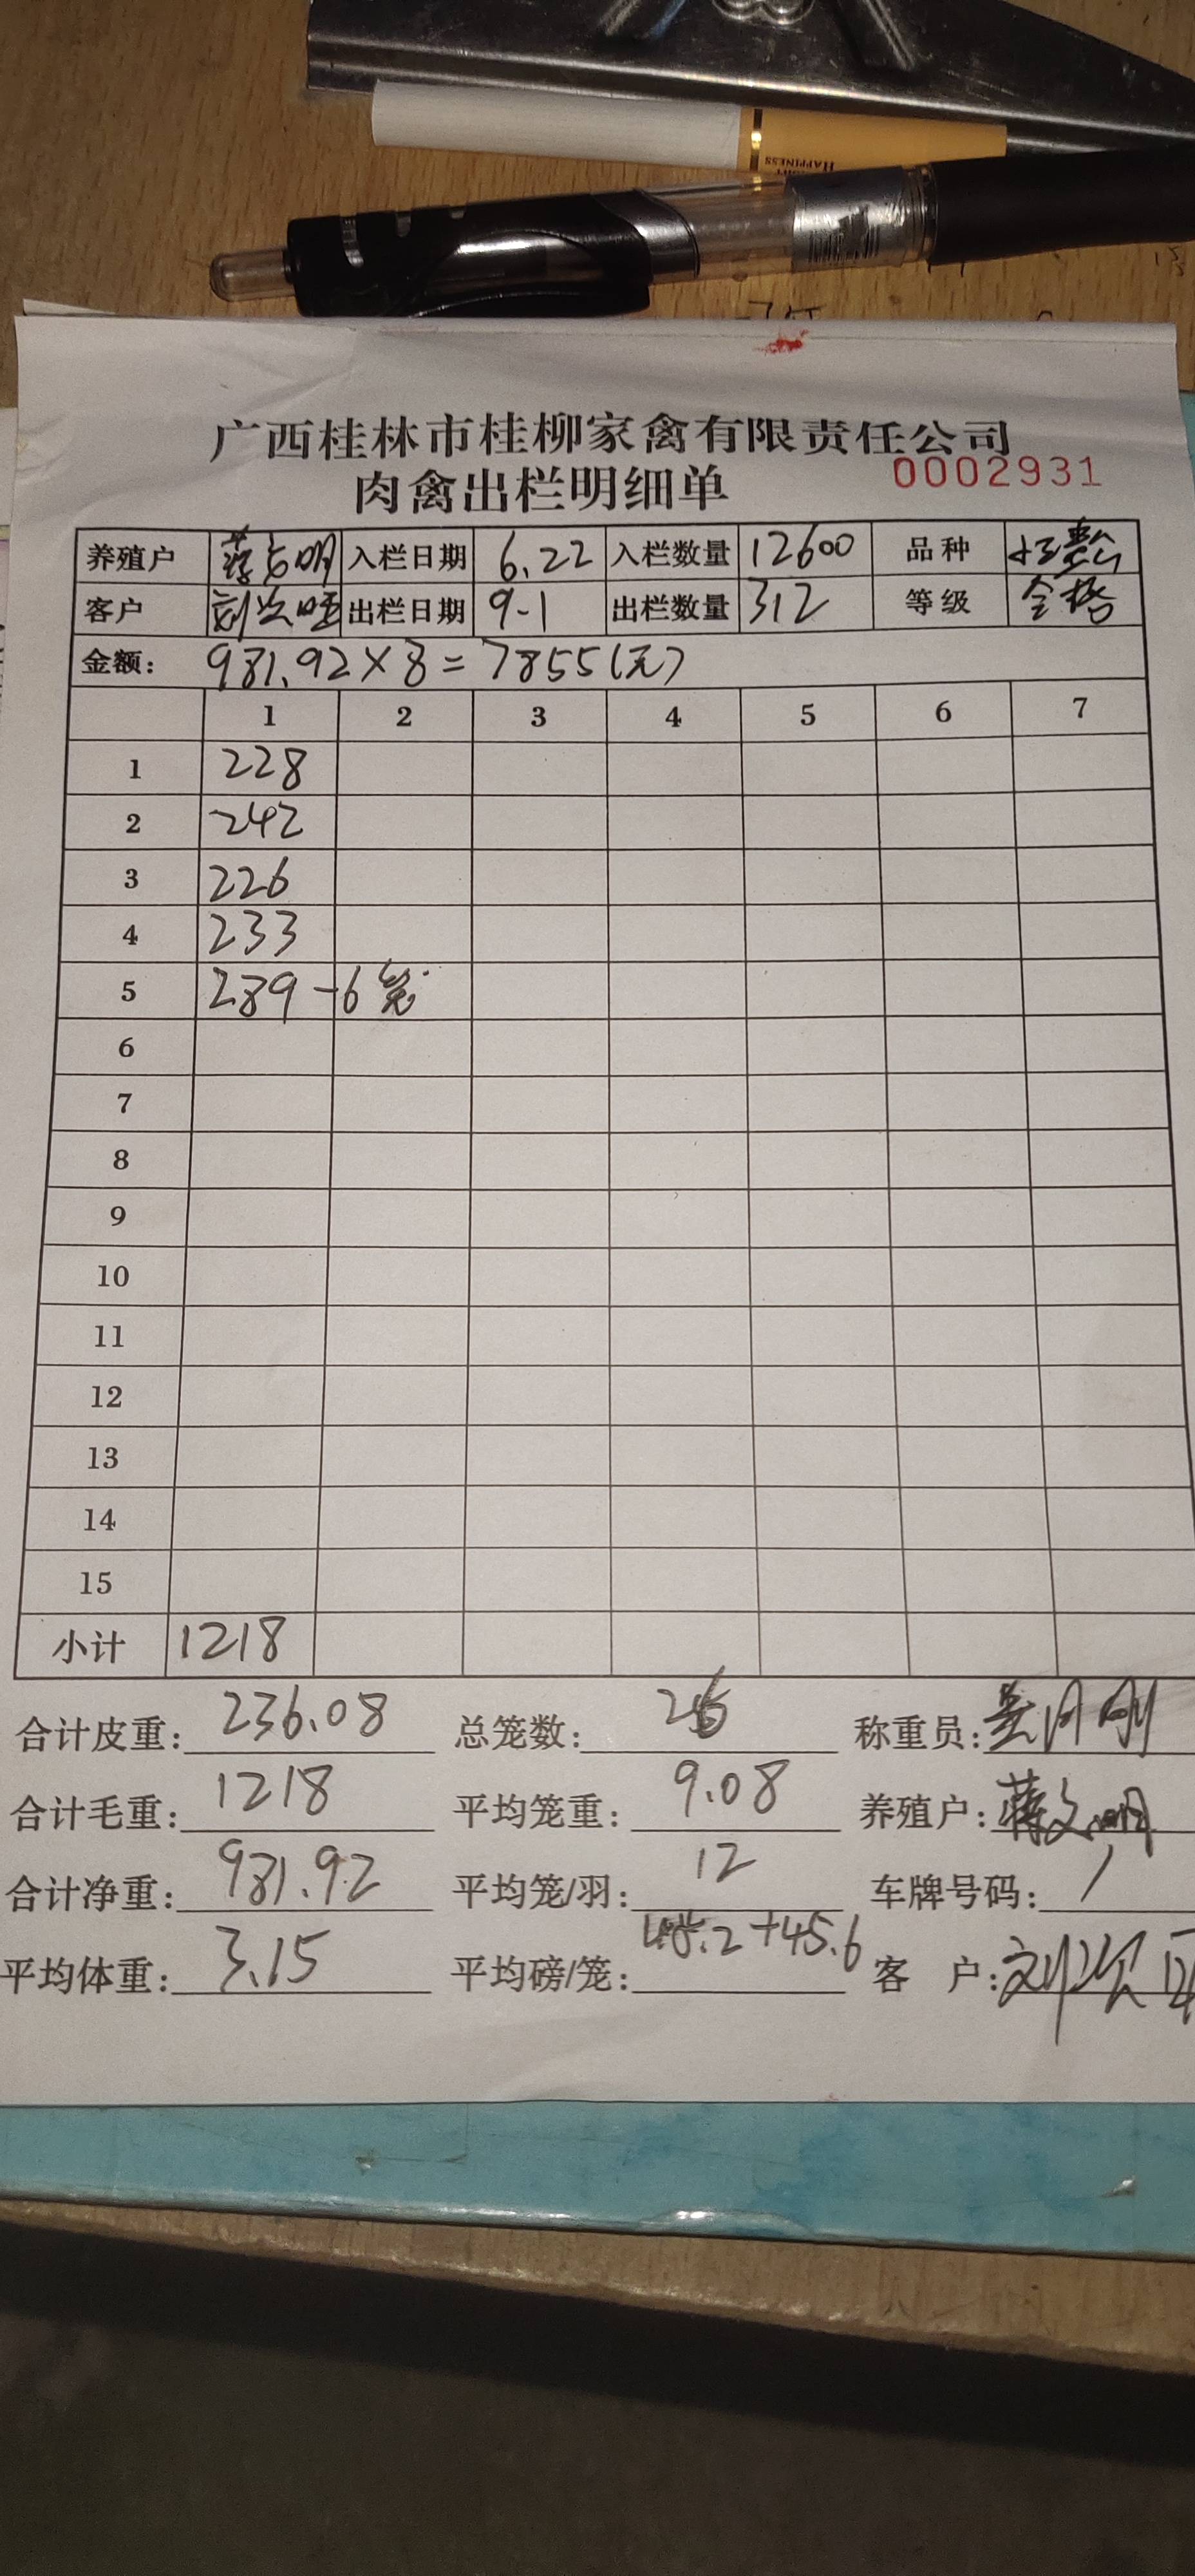 HAPPINESS
广西桂林市桂柳家禽有限责任公司
0002931
肉禽出栏明细单
养殖户 蒋文明 入栏日期 6.22 入栏数量 12600 品种
客户 出栏日期 9-1 出栏数量 312 等级 合格
金额: 981.92×8=7855(元)
1 2 3 4 5 6 7
1 228
2 242
3 226
4 233
5 289-6笼
6
7
8
9
10
11
12
13
14
15
小计 1218
合计皮重: 236.08 总笼数: 26 称重员:
合计毛重: 1218 平均笼重: 9.08 养殖户: 蒋文明
合计净重: 981.92 平均笼/羽: 12 车牌号码: /
平均体重: 3.15 平均磅/笼: +45.6 客 户: